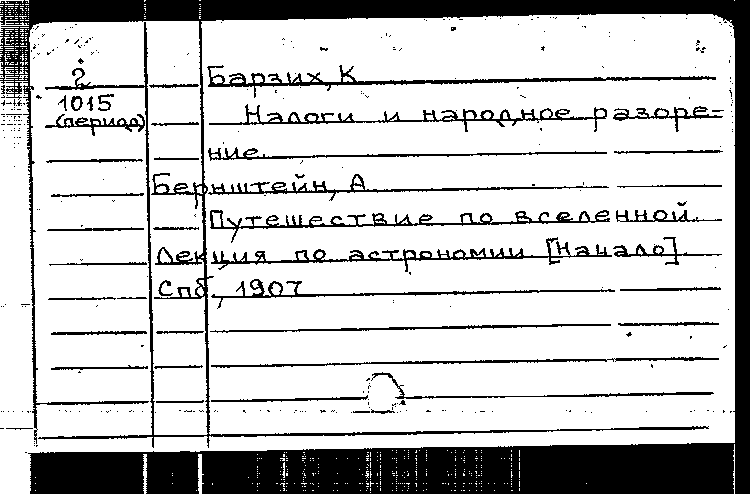 2
1015
(период)
Барзих, К
Налоги и народное разоре=
ние.
Бернштейн, А
Путешествие по вселенной.
Лекция по астрономии [Начало].
Спб., 1907